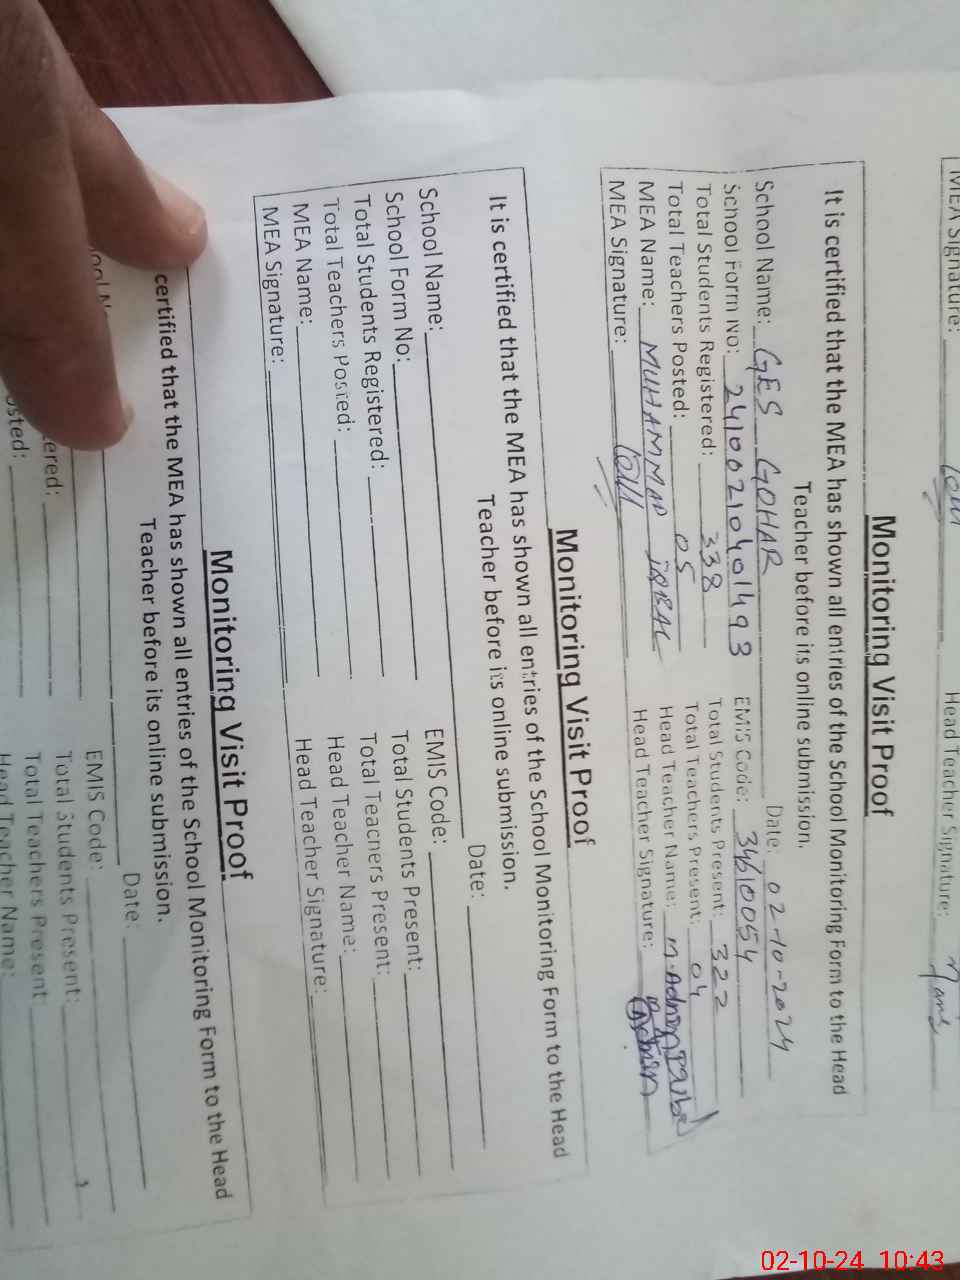 MEA Signature:
Head Teacher Signature:
Monitoring Visit Proof
It is certified that the MEA has shown all entries of the School Monitoring Form to the Head
Teacher before its online submission.
Date: 02-10-2024
School Name: GES GOHAR
School Form No: 24100210401493 EMIS Code: 34610054
Total Students Registered: 338 Total Students Present: 322
Total Teachers Posted: 05 Total Teachers Present: 04
MEA Name: MUHAMMAD IQBAL Head Teacher Name: M. Adnan
MEA Signature: Head Teacher Signature:
Monitoring Visit Proof
It is certified that the MEA has shown all entries of the School Monitoring Form to the Head
Teacher before its online submission.
Date:
School Name:
School Form No: EMIS Code:
Total Students Registered: Total Students Present:
Total Teachers Posted: Total Teachers Present:
MEA Name: Head Teacher Name:
MEA Signature: Head Teacher Signature:
Monitoring Visit Proof
certified that the MEA has shown all entries of the School Monitoring Form to the Head
Teacher before its online submission.
Date:
EMIS Code:
ered: Total Students Present:
osted: Total Teachers Present:
Head Teacher Name:
02-10-24 10:43